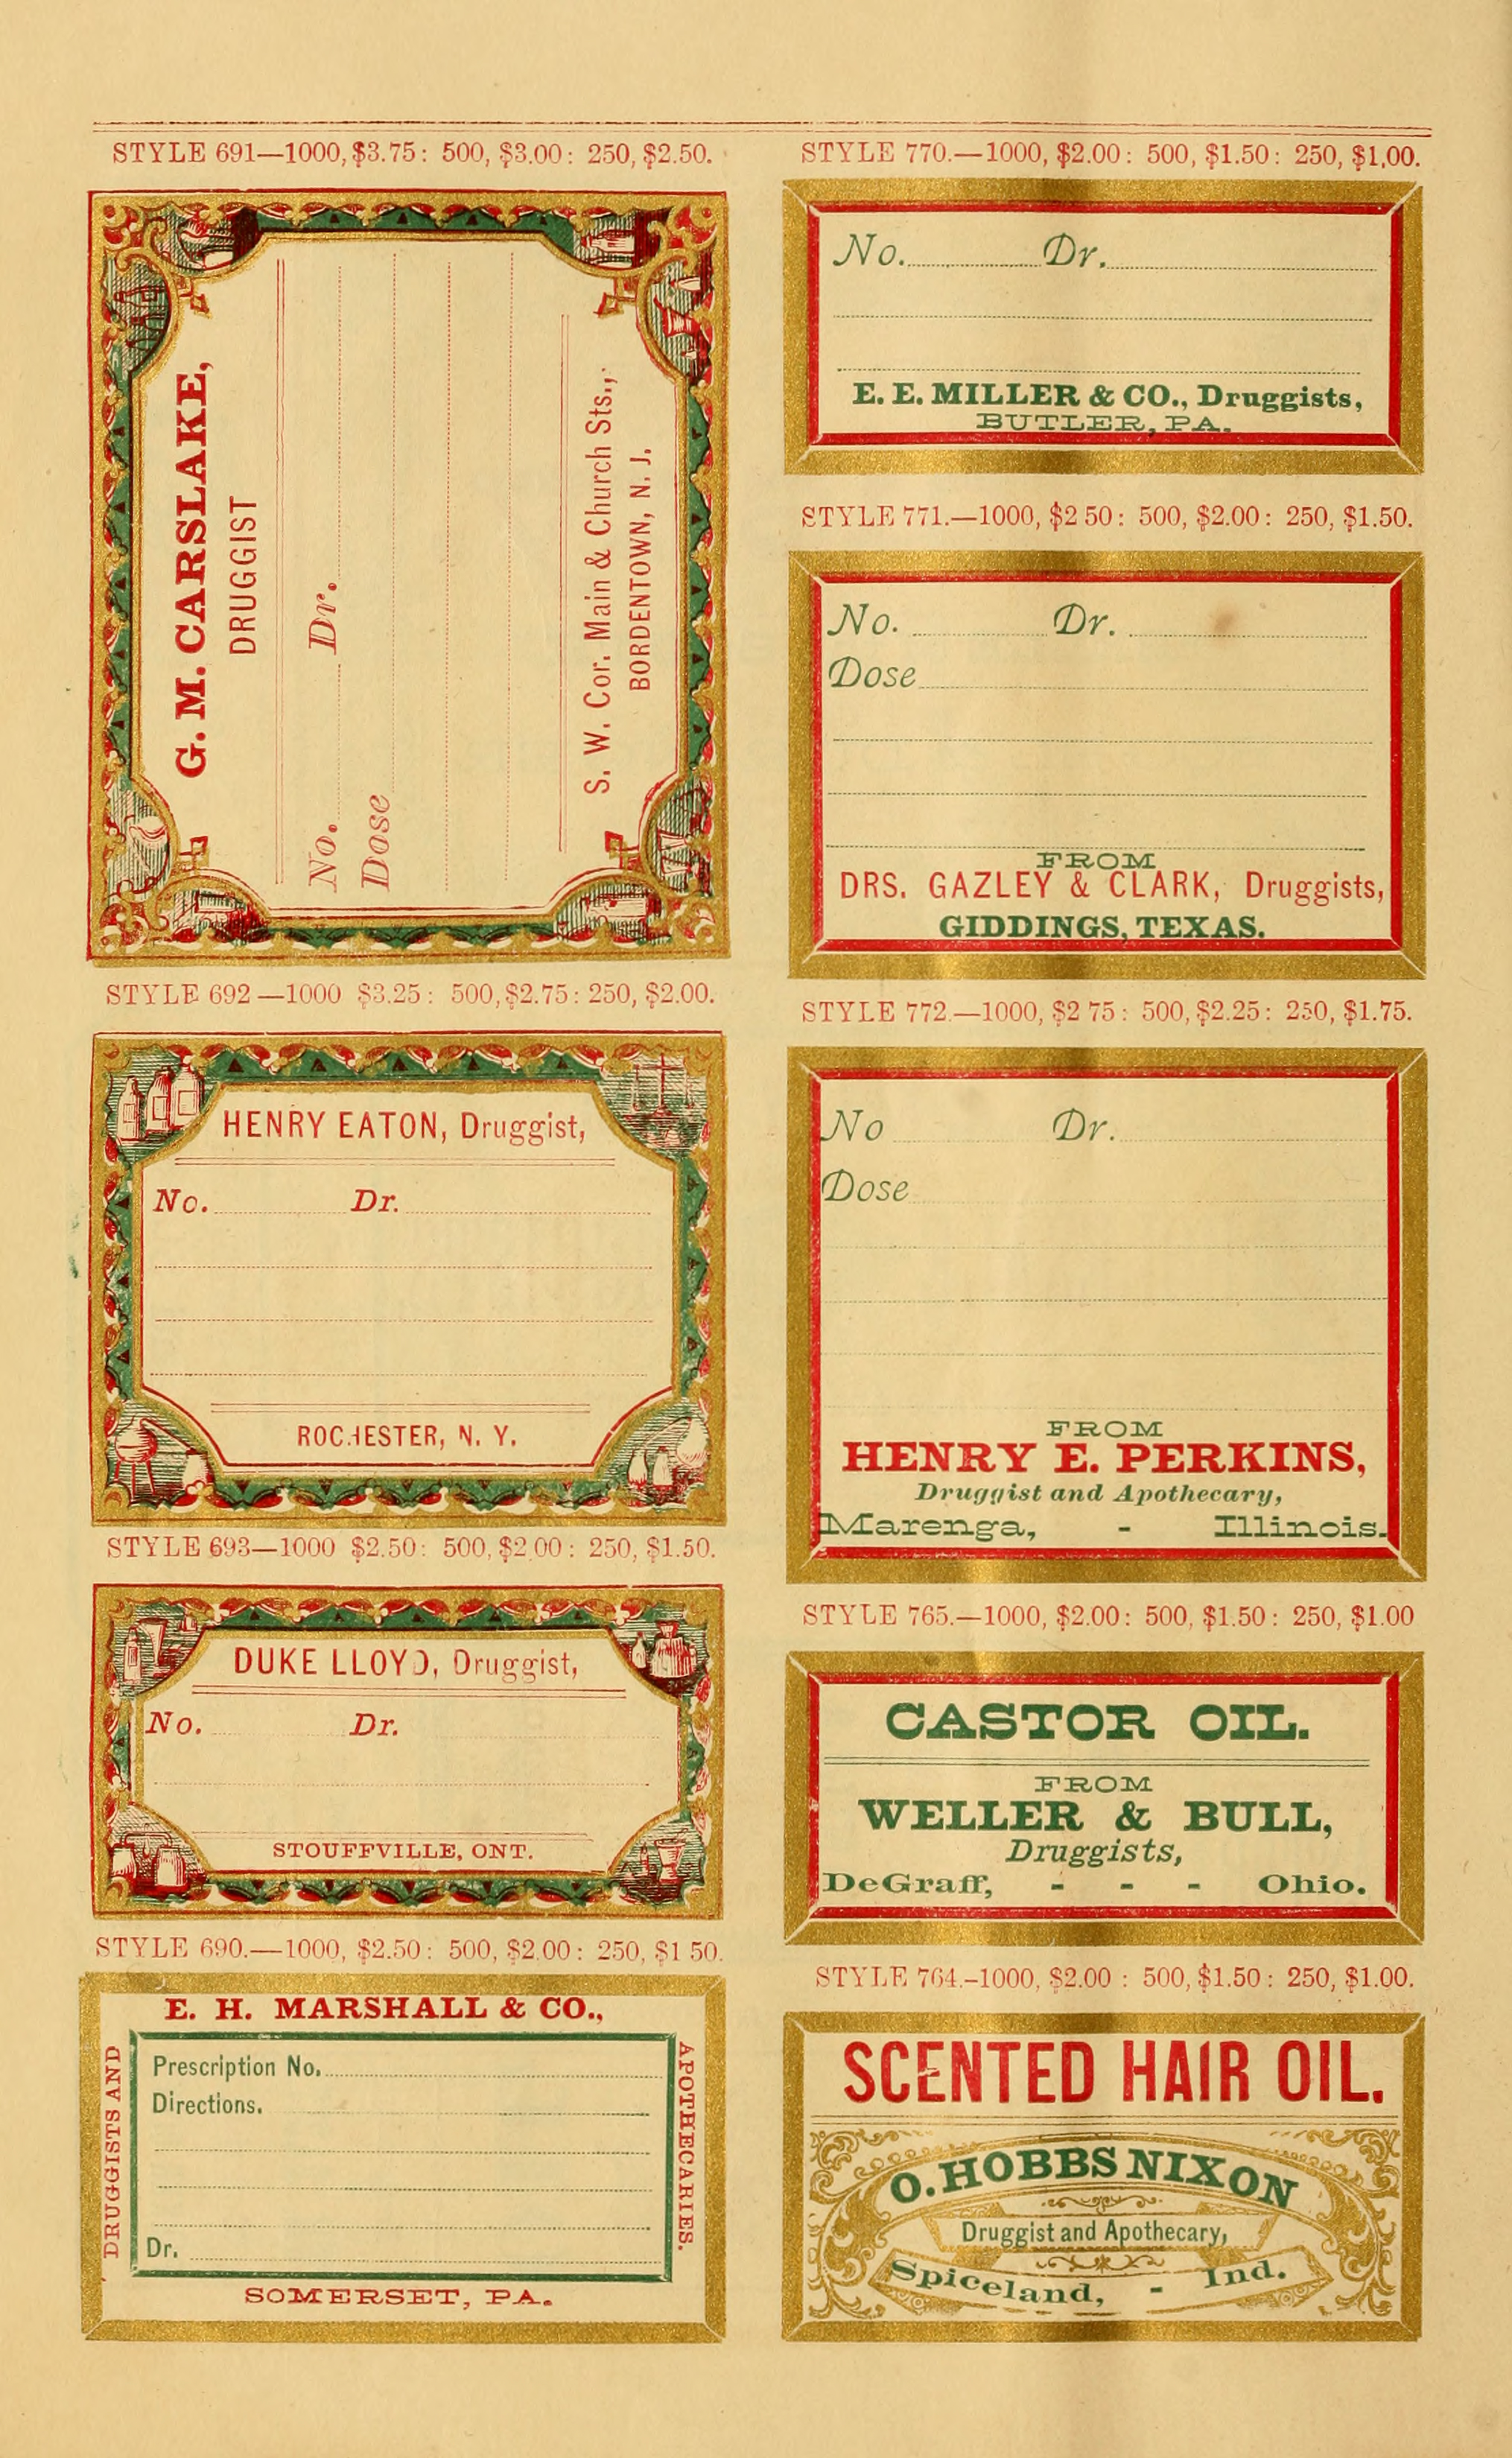 STYLE 691—1000, $3.75: 500, $3.00: 250, $2.50.
G. M. CARSLAKE,
DRUGGIST
No. Dr.
Dose
S. W. Cor. Main & Church Sts.,
BORDENTOWN, N. J.
STYLE 692—1000 $3.25: 500, $2.75: 250, $2.00.
HENRY EATON, Druggist,
No. Dr.
ROCHESTER, N. Y.
STYLE 693—1000 $2.50: 500, $2.00: 250, $1.50.
DUKE LLOYD, Druggist,
No. Dr.
STOUFFVILLE, ONT.
STYLE 690.—1000, $2.50: 500, $2.00: 250, $1 50.
E. H. MARSHALL & CO.,
DRUGGISTS AND
APOTHECARIES.
Prescription No.
Directions.
Dr.
SOMERSET, PA.
STYLE 770.—1000, $2.00: 500, $1.50: 250, $1,00.
No. Dr.
E. E. MILLER & CO., Druggists,
BUTLER, PA.
STYLE 771.—1000, $2 50: 500, $2.00: 250, $1.50.
No. Dr.
Dose
FROM
DRS. GAZLEY & CLARK, Druggists,
GIDDINGS, TEXAS.
STYLE 772.—1000, $2 75: 500, $2.25: 250, $1.75.
No Dr.
Dose
FROM
HENRY E. PERKINS,
Druggist and Apothecary,
Marenga, - Illinois.
STYLE 765.—1000, $2.00: 500, $1.50: 250, $1.00
CASTOR OIL.
FROM
WELLER & BULL,
Druggists,
DeGraff, - - - Ohio.
STYLE 764.-1000, $2.00 : 500, $1.50: 250, $1.00.
SCENTED HAIR OIL.
O. HOBBS NIXON
Druggist and Apothecary,
Spiceland, - Ind.